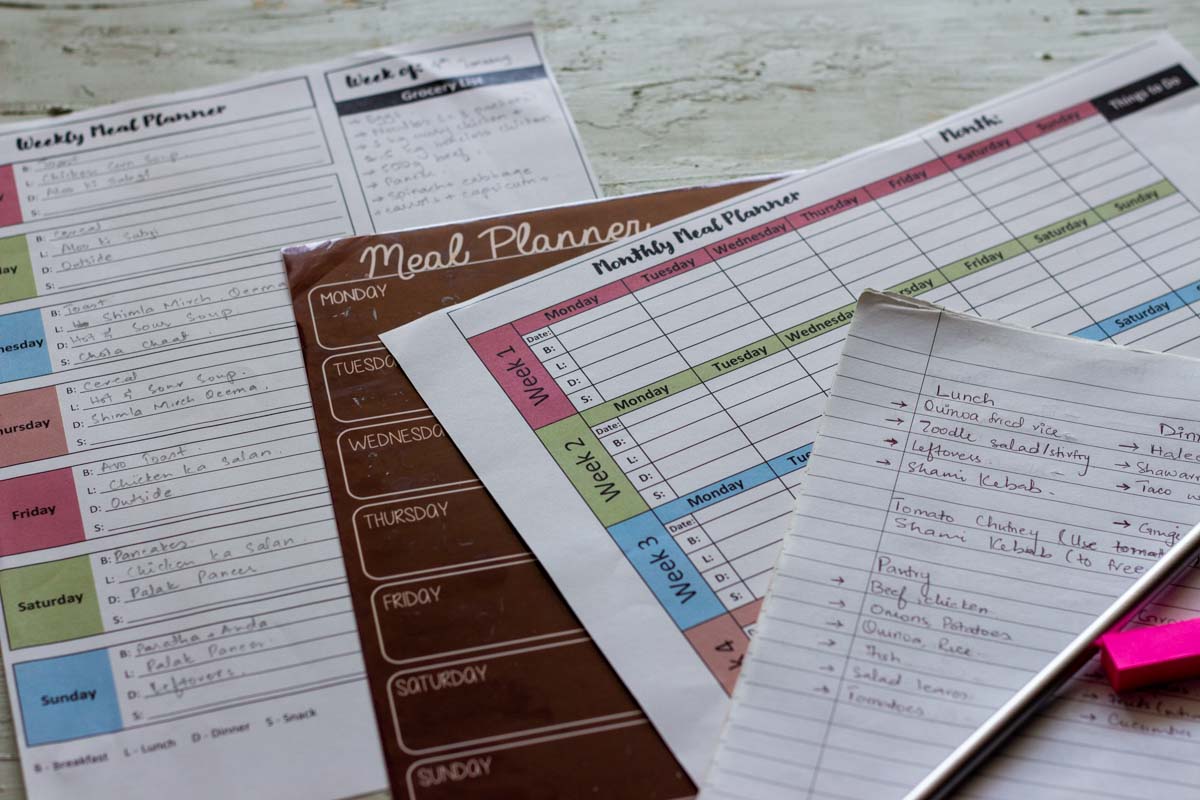 Weekly Meal Planner
B: Toast
L: Chicken Corn Soup
D: Aloo ki Sabzi
S:
B: Cereal
L: Aloo ki Sabzi
D: Outside
S:
nesday
B: Toast
L: Shimla Mirch Qeema
D: Hot & Sour Soup
S: Chola Chaat
hursday
B: Cereal
L: Hot & Sour Soup.
D: Shimla Mirch Qeema.
S:
Friday
B: Avo Toast.
L: Chicken ka Salan.
D: Outside
S:
Saturday
B: Pancakes.
L: Chicken ka Salan.
D: Palak Paneer
S:
Sunday
B: Paratha + Anda
L: Palak Paneer
D: Leftovers.
S:
B - Breakfast L - Lunch D - Dinner S - Snack
Week of: January
Grocery List
Eggs
chicken
500g beef
Spinach + cabbage
carrots + capsicum +
Meal Planner
MONDAY
TUESDA
WEDNESDA
THURSDAY
FRIDAY
SATURDAY
SUNDAY
Monthly Meal Planner
Month:
Things to Do
Week 1
Monday Tuesday Wednesday Thursday Friday Saturday Sunday
Date:
B:
L:
D:
S:
Week 2
Monday Tuesday Wednesday rsday Friday Saturday Sunday
Date:
B:
L:
D:
S:
Week 3
Monday Tue Saturday
Date:
B:
L:
D:
S:
k 4
Lunch
→ Quinoa fried rice
→ Zoodle salad/stirfry
→ Leftovers.
→ Shami Kebab.
Tomato Chutney (Use tomat
Shami Kebab (to free
Pantry
→ Beef, chicken
→ Onions, Potatoes
→ Quinoa, Rice.
→ Fish
→ Salad leaves
→ Tomatoes.
Dinn
→ Halee
→ Shawar
→ Taco w
→ Ginge
→ Cucumber